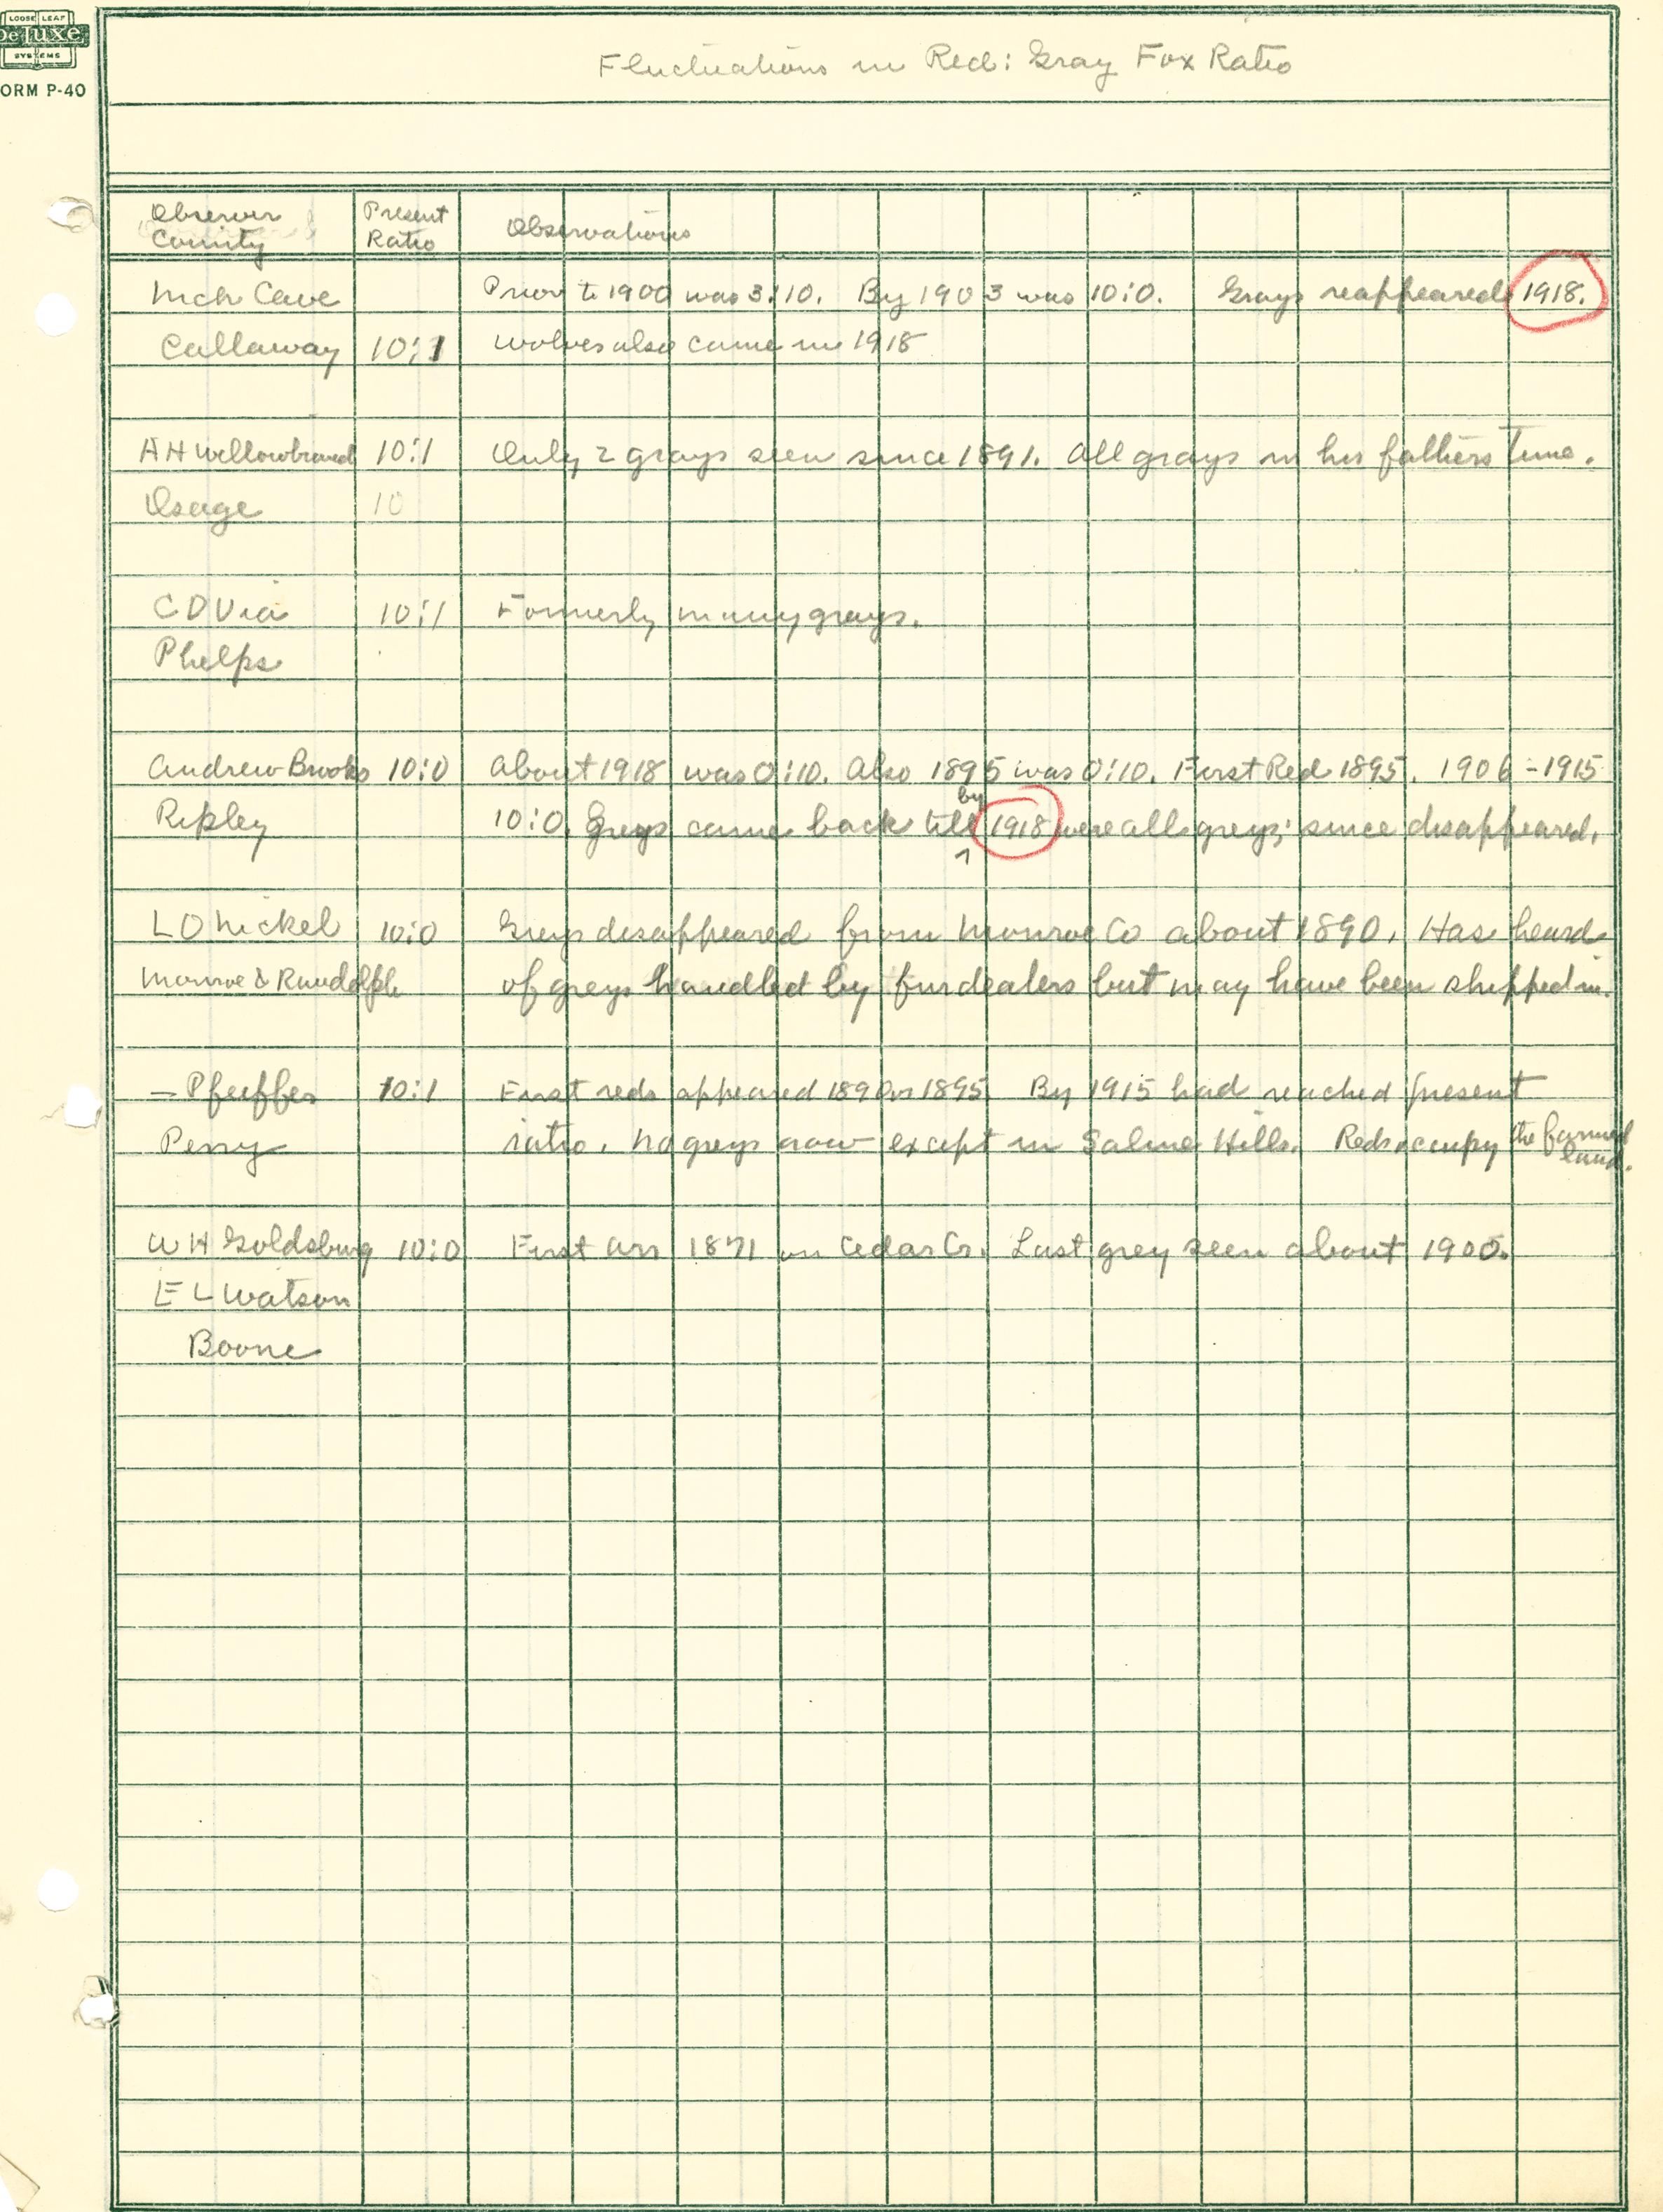 LOOSE LEAF
De Luxe
SYSTEMS
ORM P-40
Fluctuations in Red: Gray Fox Ratio
Observer Present Observations
County Ratio
Nich Cave Prior to 1900 was 3:10. By 1903 was 10:0. Grays reappeared 1918.
Callaway 10:1 Wolves also came in 1918
A H 10:1 Only 2 grays seen since 1891. All grays in his fathers time.
Osage 10
C D Via 10:1 Formerly many grays.
Phelps
Andrew Brooks 10:0 About 1918 was 0:10. Also 1895 was 0:10. First Red 1895. 1906-1915
by
Ripley 10:0. Greys came back till 1918 were all greys; since disappeared.
L O Nickel 10:0 Greys disappeared from Monroe Co about 1890. Has heard
Monroe & Randolph of greys handled by furdealers but may have been shipped in.
— Pfeiffer 10:1 First reds appeared 1890 or 1895. By 1915 had reached present
Perry ratio. No greys now except in Saline Hills. Reds occupy the farmed
land.
W H Goldsburg 10:0 First arr 1871 on Cedar Cr. Last grey seen about 1900.
E L Watson
Boone